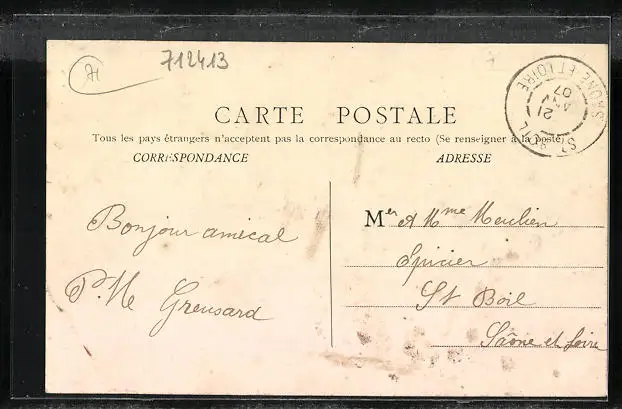 71
712413
CARTE POSTALE
Tous les pays étrangers n'acceptent pas la correspondance au recto (Se renseigner à la poste)
CORRESPONDANCE
ADRESSE
ST BOIL
SAONE-ET-LOIRE
21
JANV
07
Bonjour amical
P. Me Greusard
Mer et Mme Meulien
Epicier
St Boil
Saône et Loire